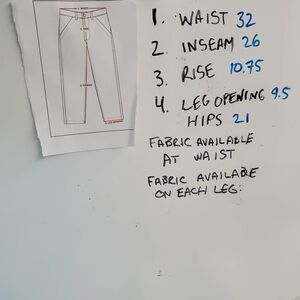 1. WAIST 32
2. INSEAM 26
3. RISE 10.75
4. LEG OPENING 9.5
HIPS 21
FABRIC AVAILABLE
AT WAIST
FABRIC AVAILABLE
ON EACH LEG: